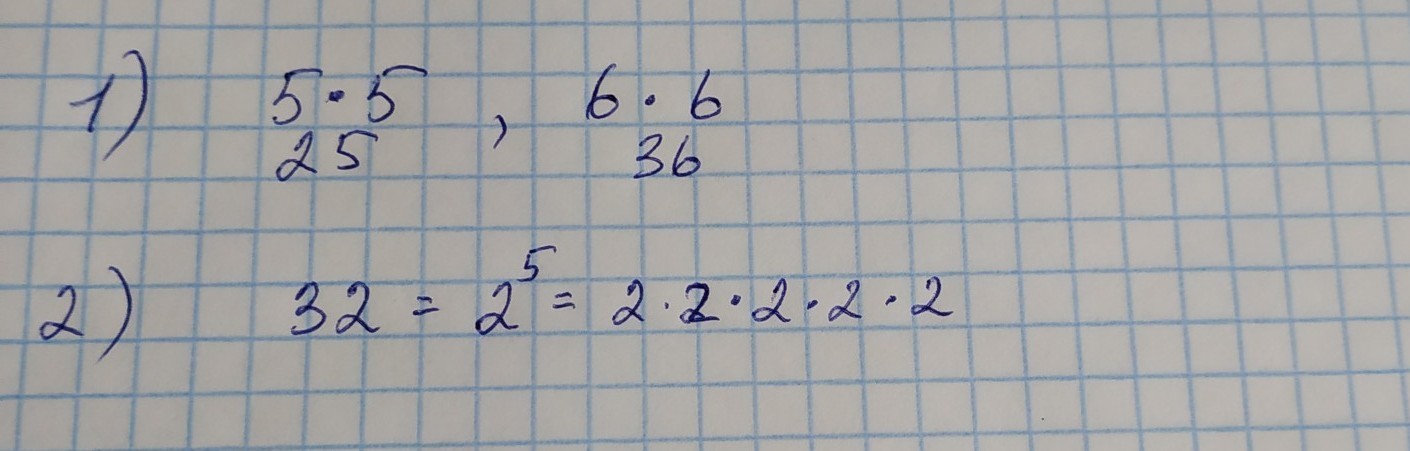 1) 5·5 , 6·6
25 36
2) 32 = 2⁵ = 2·2·2·2·2